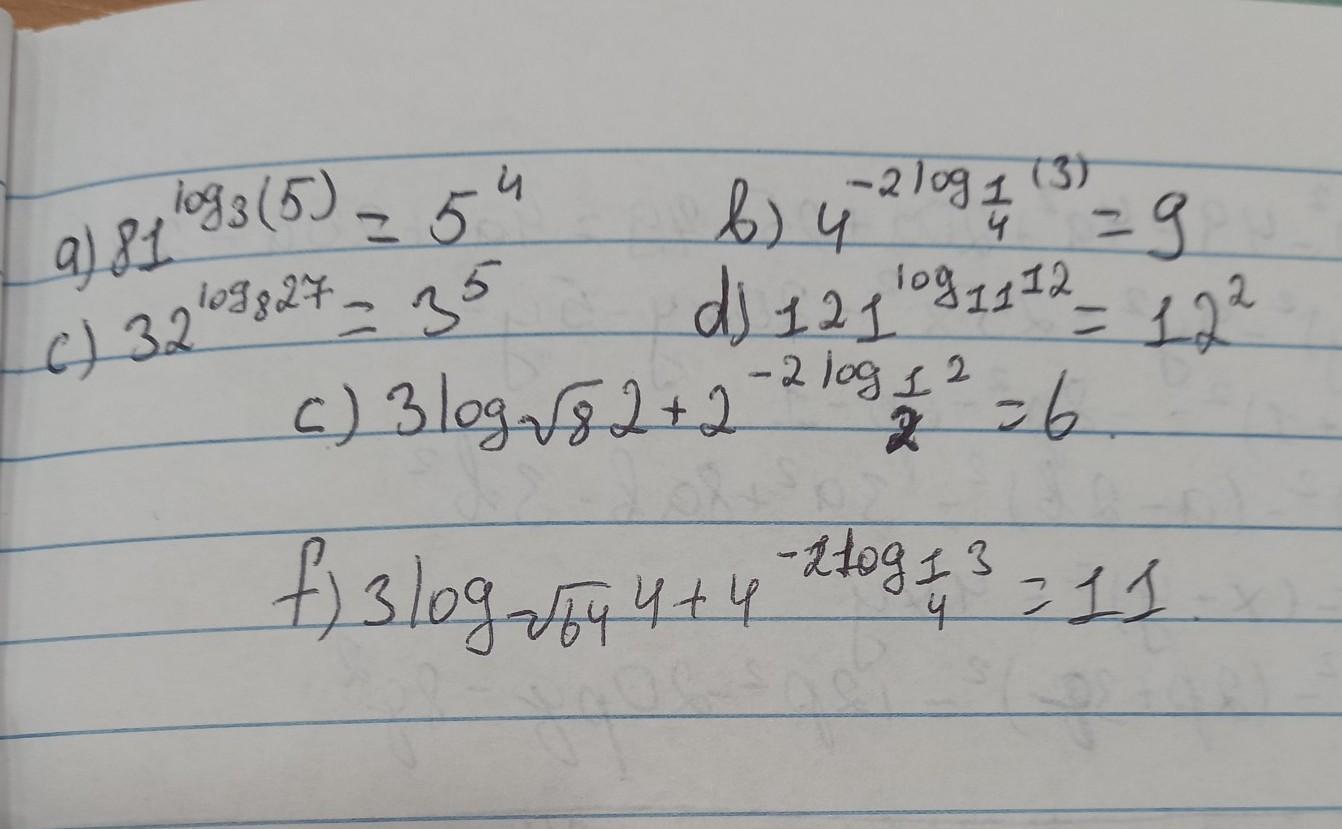 a) 81^log₃(5) = 5⁴ b) 4^-2log_1/4 (3) = 9
c) 32^log₈27 = 3⁵ d) 121^log₁₁12 = 12²
c) 3log_√8 2 + 2^-2log_1/2 2 = 6.
f) 3log_√64 4 + 4^-2log_1/4 3 = 11.